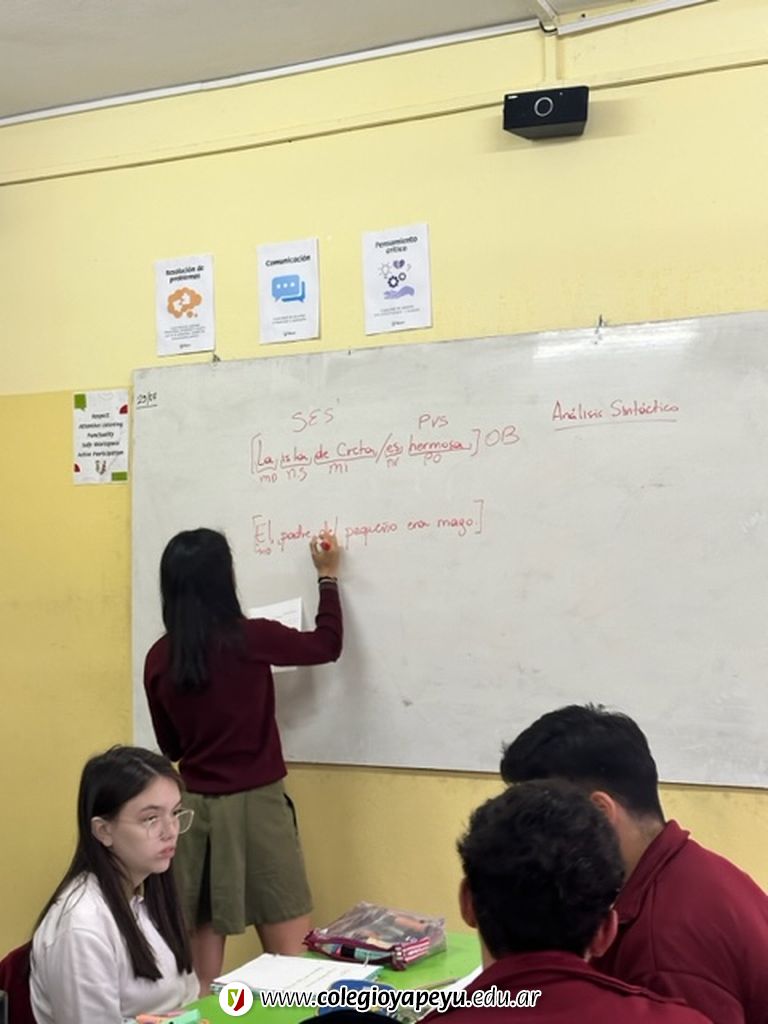 Pensamiento
crítico
Comunicación
Resolución de
problemas
Respect
Attentive Listening
Punctuality
Safe Workspace
Active Participation
Análisis Sintáctico
SES PVS
[La isla de Creta / es hermosa] OB
MD NS MI NV PO
[El padre del pequeño era mago.]
MD
www.colegioyapeyu.edu.ar